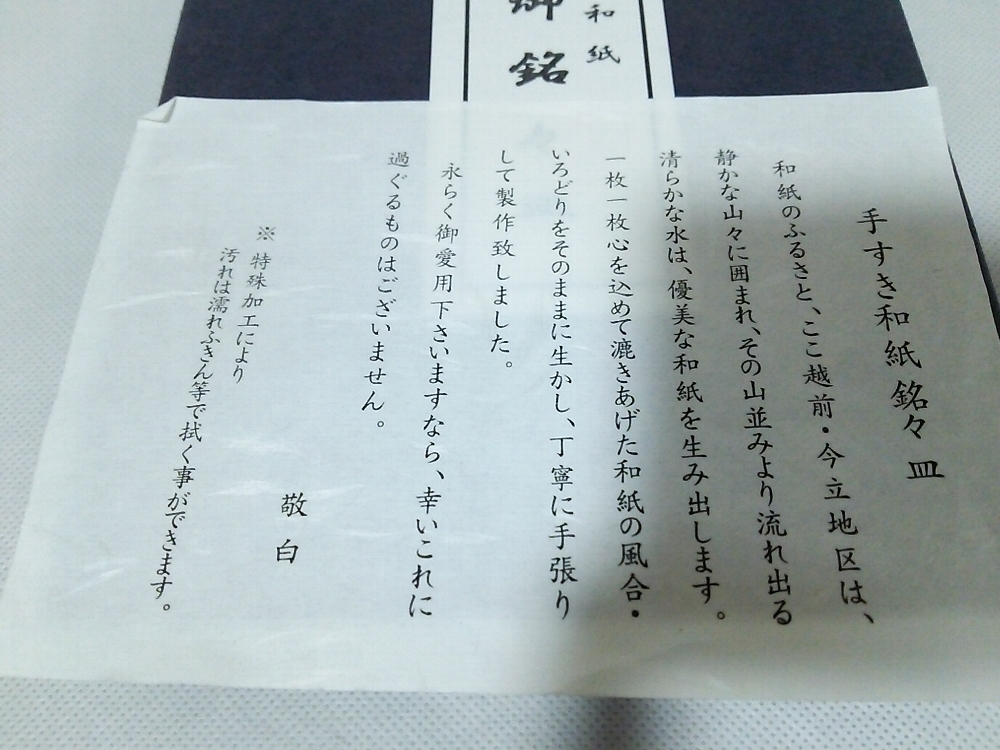 和紙
御銘
手すき和紙銘々皿
和紙のふるさと、ここ越前・今立地区は、
静かな山々に囲まれ、その山並みより流れ出る
清らかな水は、優美な和紙を生み出します。
一枚一枚心を込めて漉きあげた和紙の風合・
いろどりをそのままに生かし、丁寧に手張り
して製作致しました。
永らく御愛用下さいますなら、幸いこれに
過ぐるものはございません。
敬白
※特殊加工により
汚れは濡れふきん等で拭く事ができます。